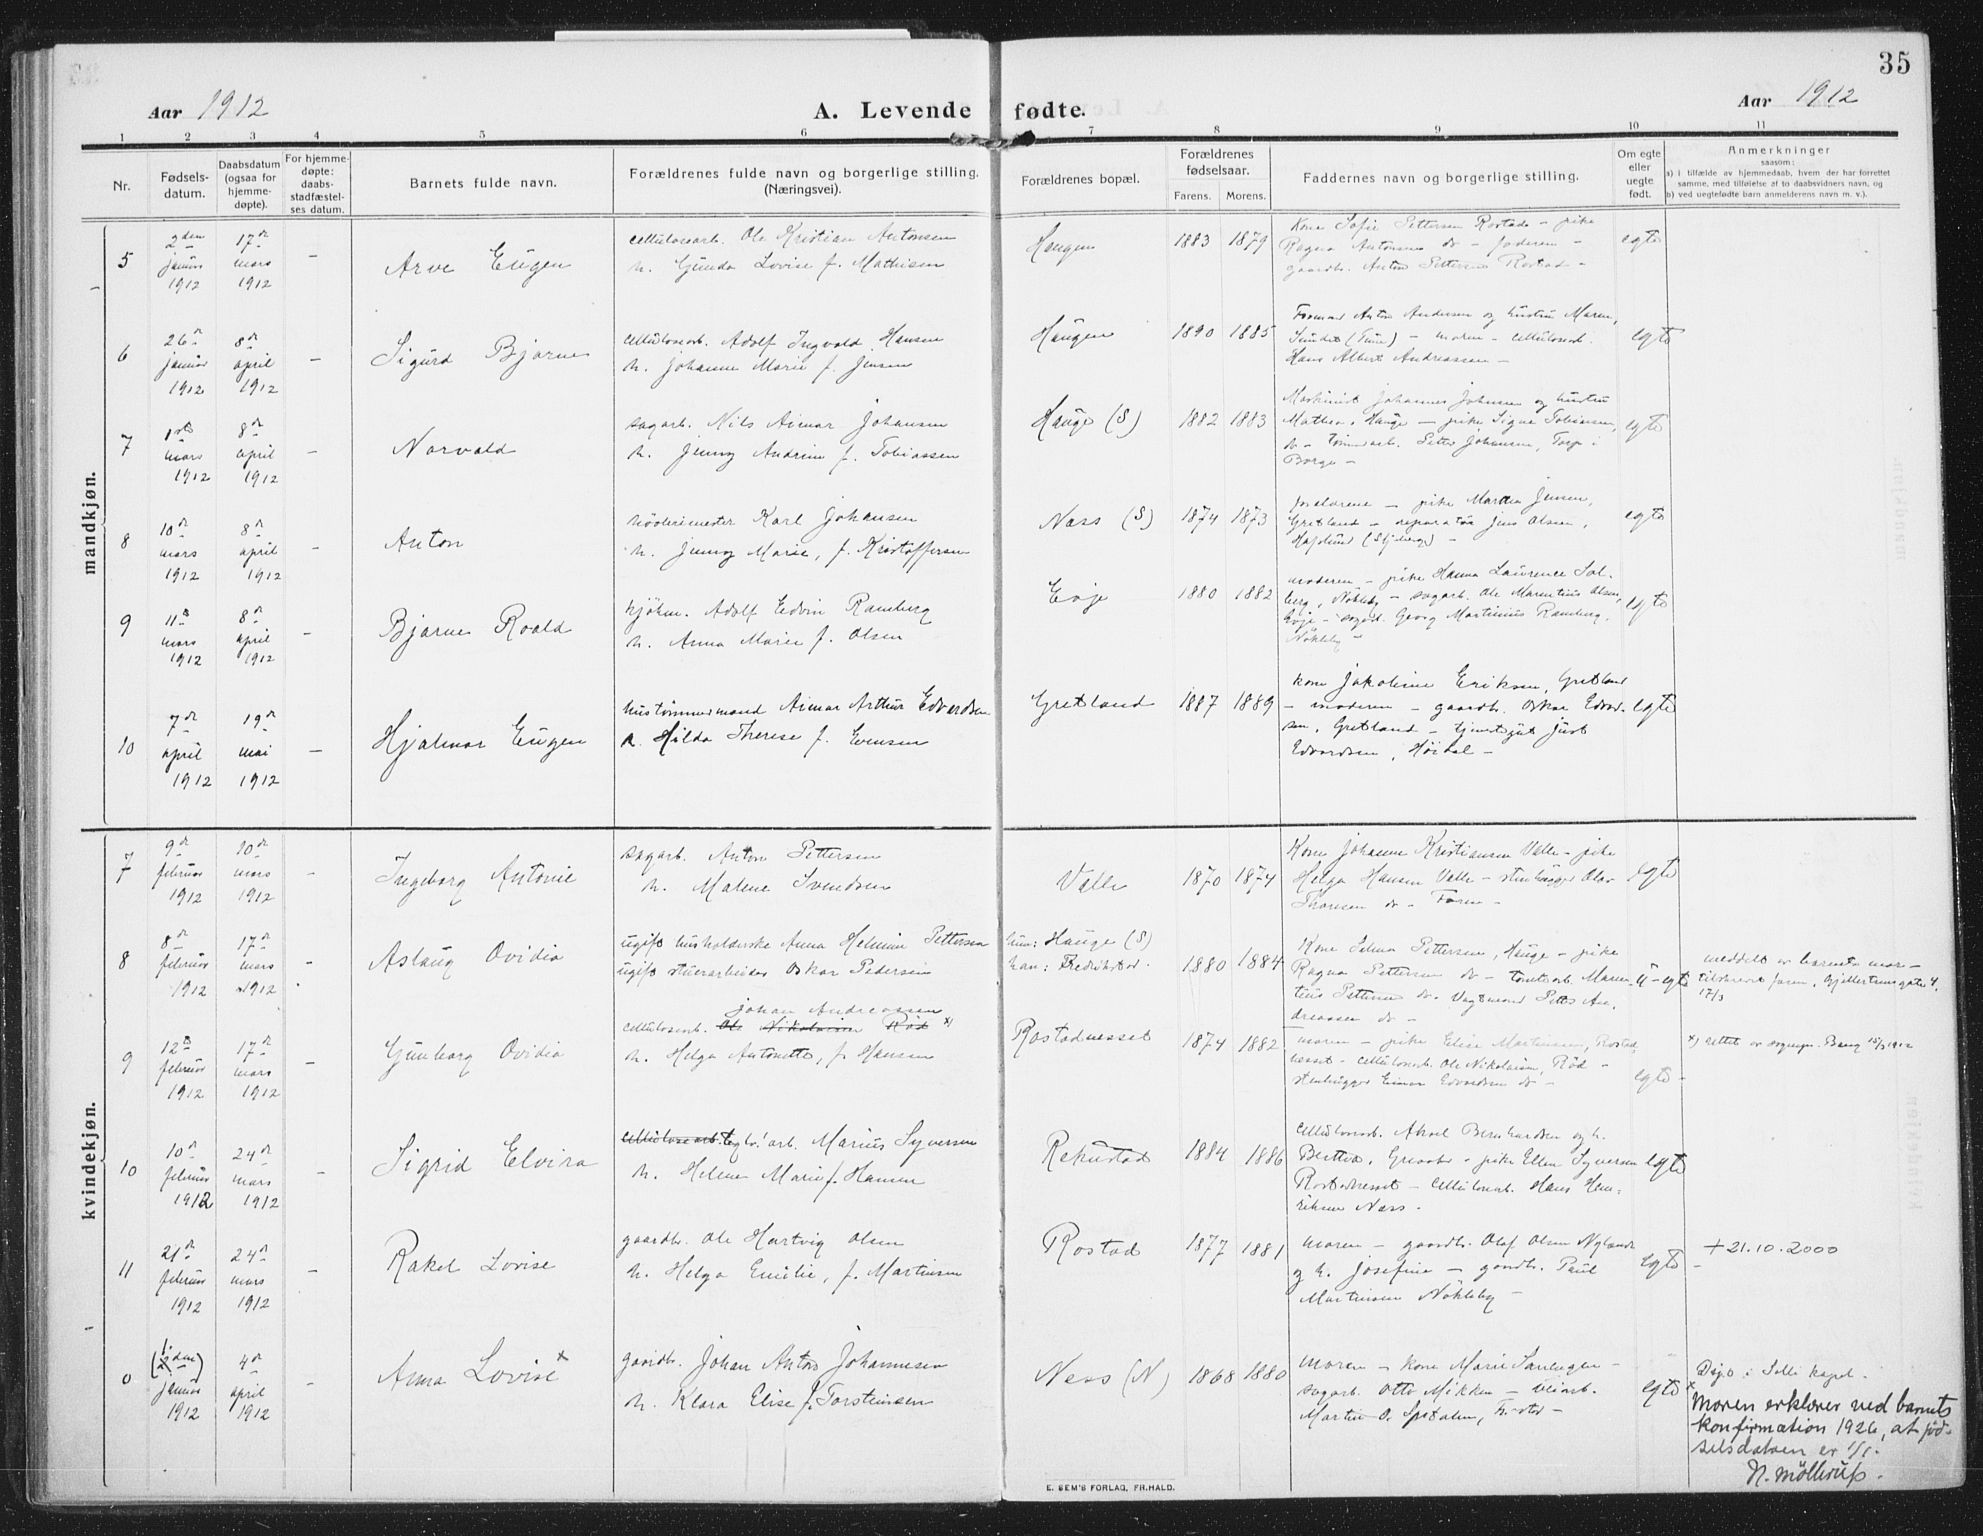 35
Aar 1912
A. Levende fødte.
Aar 1912
1 2 3 4 5 6 7 8 9 10 11
Nr.
Fødsels-
datum.
Daabsdatum
(ogsaa for
hjemme-
døpte).
For hjemme-
døpte:
daabs-
stadfæstel-
ses datum.
Barnets fulde navn.
Forældrenes fulde navn og borgerlige stilling.
(Næringsvei).
Forældrenes bopæl.
Forældrenes
fødselsaar.
Farens. Morens.
Faddernes navn og borgerlige stilling.
Om egte
eller
uegte
født.
Anmerkninger
saasom:
a) i tilfælde av hjemmedaab, hvem der har forrettet
samme, med tilføielse af to daabsvidners navn, og
b) ved uegtefødte barn anmelderens navn m. v.).
mandkjøn.
5
2den
januar
1912
17de
mars
1912
-
Arve Eugen
cellulosearb. Ole Kristian Antonsen
h. Gunda Lovise f. Mathisen
Haugen
1883 1879
Kone Sofie Pettersen Rostad - pike
Ragna Antonsen do - faderen -
gaardb. Anton Pettersen Rostad -
egte
6
26de
januar
1912
8de
april
1912
-
Sigurd Bjarne
cellulosearb. Adolf Ingvald Hansen
h. Johanne Marie f. Jensen
Haugen
1890 1885
Formand Anton Andersen og hustru Maren,
Sundet (Tune) - moren - cellulosearb.
Hans Albert Andreassen -
egte
7
1ste
mars
1912
8de
april
1912
-
Norvald
sagarb. Nils Aimar Johansen
h. Jenny Andrine f. Tobiassen
Hauge (S)
1882 1883
Maskinist Johannes Johnsen og hustru
Mathea, Hauge - pike Signe Tobiassen,
do - tømmerarb. Petter Johansen, Torp i
Borge -
egte
8
10de
mars
1912
8de
april
1912
-
Anton
høvlerimester Karl Johansen
h. Jenny Marie, f. Kristoffersen
Næss (S)
1874 1873
forældrene - pike Martha Jensen,
Gretland - reparatør Jens Olsen,
Hafslund (Skjeberg) -
egte
9
11te
mars
1912
8de
april
1912
-
Bjarne Roald
kjøbm. Adolf Edvin Ramberg
h. Anna Marie f. Olsen
Evje
1880 1882
moderen - pike Hanna Laurence Sol-
berg, Nøkleby - sagarb. Ole Marentius Olsen,
Evje - Georg Martinius Ramberg,
Nøkleby -
egte
10
7de
april
1912
19de
mai
1912
-
Hjalmar Eugen
hustømmermand Aimar Arthur Edvardsen
h. Hilda Therese f. Evensen
Gretland
1887 1889
kone Jakobine Eriksen, Gretland
- moderen - gaardb. Oskar Edvard-
sen, Gretland - tjenestgut Just
Edvardsen,
egte
kvindekjøn.
7
9de
februar
1912
10de
mars
1912
-
Ingeborg Antonie
sagarb. Anton Pettersen
h. Malene Svendsen
Valle
1870 1874
Kone Johanne Kristiansen Valle - pike
Helga Hansen Valle - stenhugger Olav
Thoresen do - Faren -
egte
8
8de
februar
1912
17de
mars
1912
-
Aslaug Ovidia
ugift husholderske Anna Helmine Pettersen
ugift stuerarbeider Oskar Pedersen
hun: Hauge (S)
han: Fredrikstad.
1880 1884
Kone Selma Pettersen, Hauge - pike
Ragna Pettersen do - tomtearb. Maren-
tius Pettersen do. Vagtmand Petter An-
dreassen do -
u-egte
meddelt av barnets mor -
tilskrevet faren, Gjellertrumsgate 4.
17/3
9
12te
februar
1912
17de
mars
1912
-
Gunborg Ovidia
Johan Andreassen
cellulosearb. Ole Nikolaisen Rød x)
h. Helga Antonette, f. Hansen
Rostadnesset
1874 1882
moren - pike Elise Martinsen, Rostad-
nesset - cellulosearb. Ole Nikolaisen, Rød -
stenhugger Einar Edvardsen do -
egte -
x) rettet av sognepr. Bang 15/3 1912
10
10de
februar
1912
24de
mars
1912
-
Sigrid Elvira
cellulosearb. Teglv. arb. Marius Syversen
h. Helene Marie f. Hansen
Rekustad
1884 1886
cellulosearb. Aksel Bernhardsen og h.
Berthea, - pike Ellen Syversen
Rostadnesset - cellulosearb. Hans Hen-
riksen Næss.
egte
11
21de
februar
1912
24de
mars
1912
-
Rakel Lovise
gaardb. Ole Hartvig Olsen
h. Helga Emilie, f. Martinsen
Rostad
1877 1881
moren - gaardb. Olaf Olsen Nylænde
og h. Josefine - gaardb. Paul
Martinsen Nøkleby -
egte
+ 21.10.2000
-
0
1.
(2den)
januar
1912
4de
april
1912
-
Anna Lovise x
gaardb. Johan Anton Johannesen
h. Klara Elise f. Torstensen
Ness (N)
1868 1880
moren - kone Marie Sanengen -
sagarb. Otto Mikken - veiarb.
Martin O.
egte
Døpt i Solli kapel.
x
Moren erklærer ved barnets
konfirmation 1926, at fød-
selsdatoen er 1/1.
N. Møllerup.
E. SEM'S FORLAG, FR.HALD.